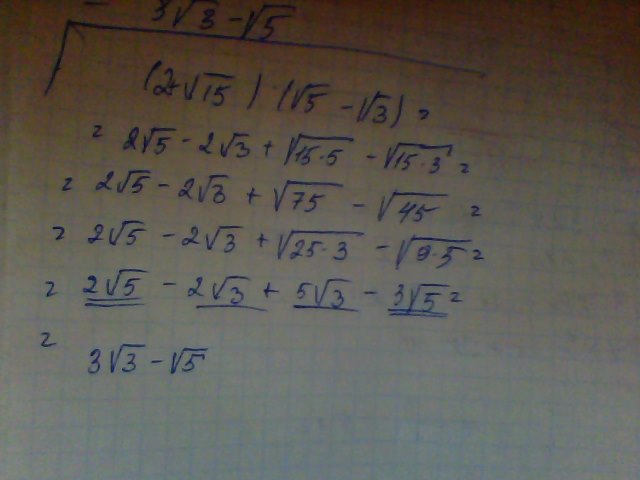 - 3√3 - √5
(2+√15) · (√5 - √3) =
= 2√5 - 2√3 + √15·5 - √15·3 =
= 2√5 - 2√3 + √75 - √45 =
= 2√5 - 2√3 + √25·3 - √9·5 =
= 2√5 - 2√3 + 5√3 - 3√5 =
= 3√3 - √5